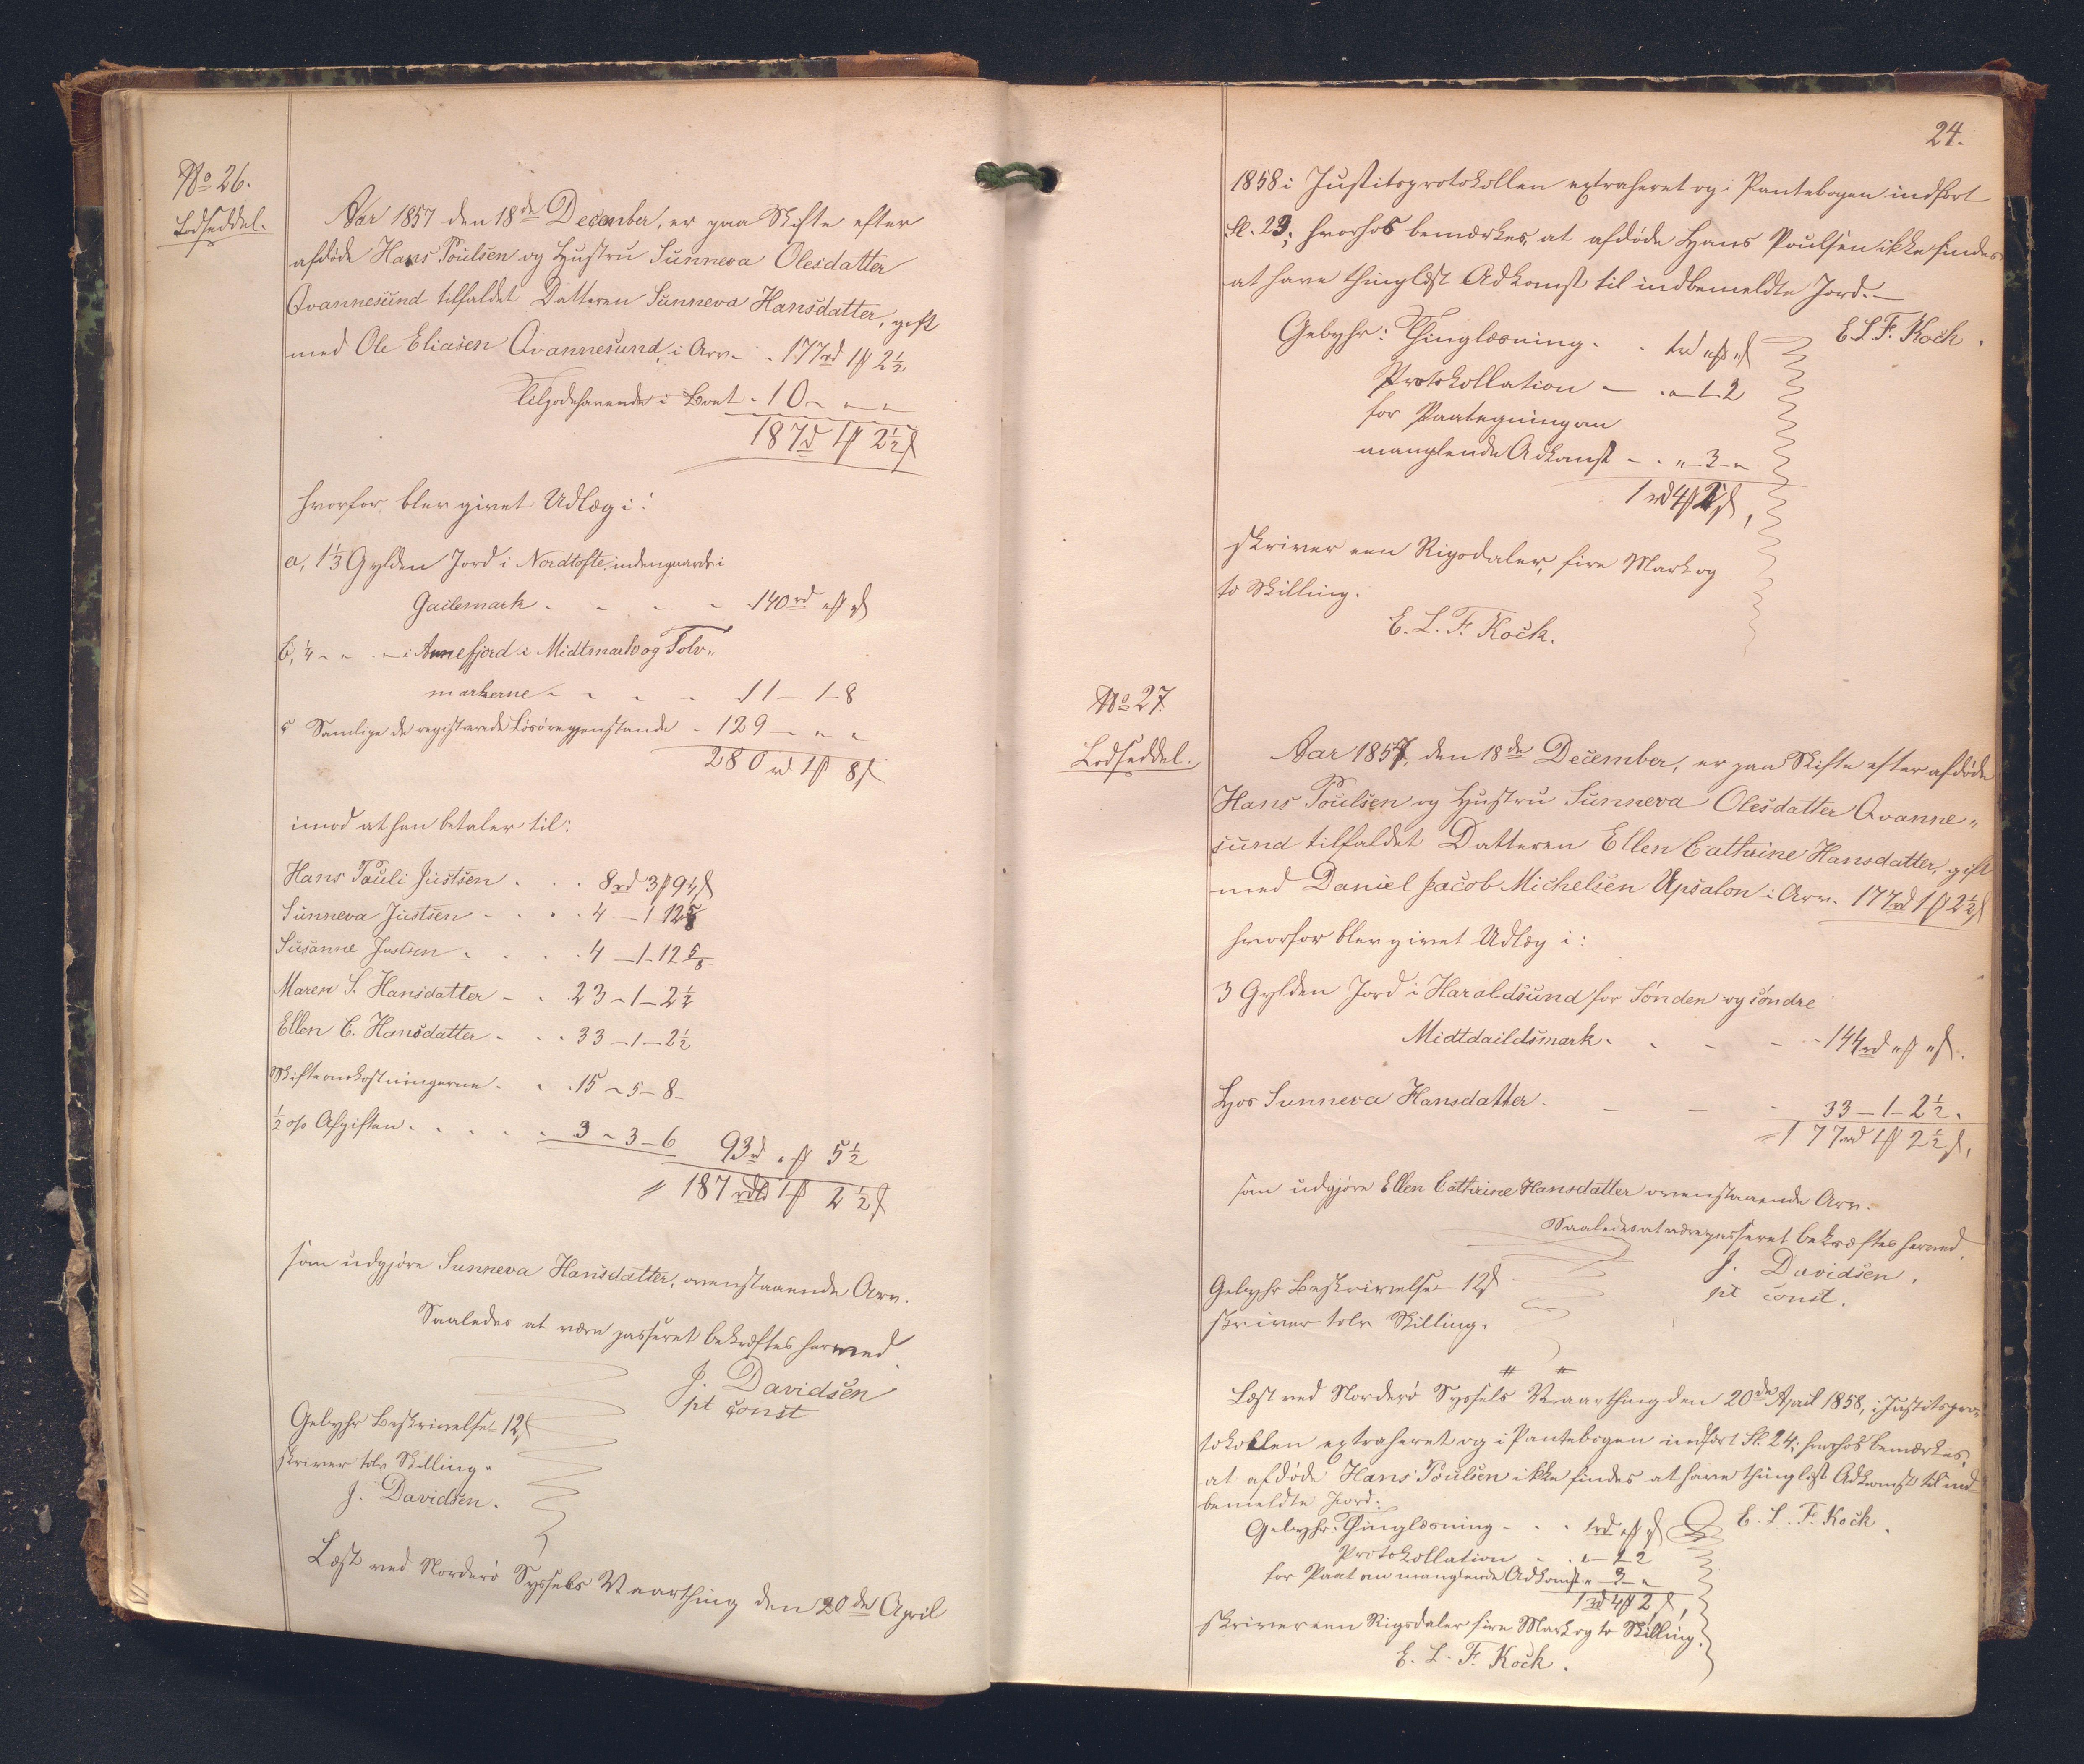 No 26.
Lodseddel.
Aar 1857 den 18de December, er paa Skifte efter
afdøde Hans Poulsen og Hustru Sunneva Olesdatter
Qvannesund tilfaldet Datteren Sunneva Hansdatter, gift
med Ole Eliasen Qvannesund, i Arv - - 177rd 1ß 2½
Tilgodehavende i Boet - 10 - " - "
187rd 1ß 2½ß
hvorfor blev givet Udlæg i:
a, 1⅓ Gylden Jord i Nordtofte indengaards i
Gailemark - - - - 140rd "ß "ß
b, ¼ - " - " - i Annefjord i Midtmark og Tolv"
markerne - - - - 11 - 1 - 8
c Samlige de registerede Løsøregjenstande - 129 - " - "
280rd 1ß 8ß
imod at hun betaler til:
Hans Pauli Justsen - - - 8rd 3ß 9¼ß
Sunneva Justsen - - - 4 - 1 - 12⅝
Susanne Justsen - - - 4 - 1 - 12⅝
Maren S. Hansdatter - - 23 - 1 - 2½
Ellen C. Hansdatter - - - 33 - 1 - 2½
Skifteomkostningerne - - - 15 - 5 - 8 -
½ o/o Afgiften - - - - - 3 - 3 - 6 93rd "ß 5½
= 187rdl 1ß 2½ß
som udgjøre Sunneva Hansdatter, ovenstaaende Arv.
Saaledes at være passeret bekræftes hermed.
J. Davidsen
pt const
Gebyhr Beskrivelse - 12ß
skriver tolv Skilling.
J. Davidsen.
Læst ved Norderø Syssels Vaarthing den 20de April
24.
1858 i Justitsprotokollen extraheret og i Pantebogen indført
Fl. 23; hvorhos bemærkes, at afdøde Hans Poulsen ikke findes
at have thinglæst Adkomst til indbemeldte Jord. -
E. L. F. Koch.
Gebyhr: Thinglæsning - - 1rd "ß "ß
Protokollation - - " - 1 - 2
for Paategning om
manglende Adkomst - - " - 3 - "
1rd 4ß 2ß,
skriver een Rigsdaler, fire Mark og
to Skilling.
E. L. F. Koch.
No 27.
Lodseddel.
Aar 1857, den 18de December, er paa Skifte efter afdøde
Hans Poulsen og Hustru Sunneva Olesdatter Qvanne"
sund tilfaldet Datteren Ellen Cathrine Hansdatter, gift
med Daniel Jacob Michelsen Upsalon i Arv - 177rd 1ß 2½ß
hvorfor blev givet Udlæg i:
3 Gylden Jord i Haraldsund for Sønden og søndre
Midtdaildsmark - - - - - 144rd "ß "ß.
Hos Sunneva Hansdatter - - - - 33 - 1 - 2½.
= 177rd 1ß 2½ß,
som udgjøre Ellen Cathrine Hansdatter ovenstaaende Arv.
Saaledes at være passeret bekræftes hermed.
J. Davidsen.
pt const.
Gebyhr Beskrivelse - 12ß
skriver tolv Skilling.
Læst ved Norderø Syssels Vaarthing den 20de April 1858, i Justitspro-
tokollen extraheret og i Pantebogen indført Fl. 24; hvorhos bemærkes,
at afdøde Hans Poulsen ikke findes at have thinglæst Adkomst til ind-
bemeldte Jord.
E. L. F. Koch.
Gebyhr: Thinglæsning - - - 1rd "ß "ß
Protokollation - - " - 1 2
for Paat om manglende Adkomst - " 3 - "
1rd 4ß 2ß,
skriver een Rigsdaler fire Mark og to Skilling.
E. L. F. Koch.